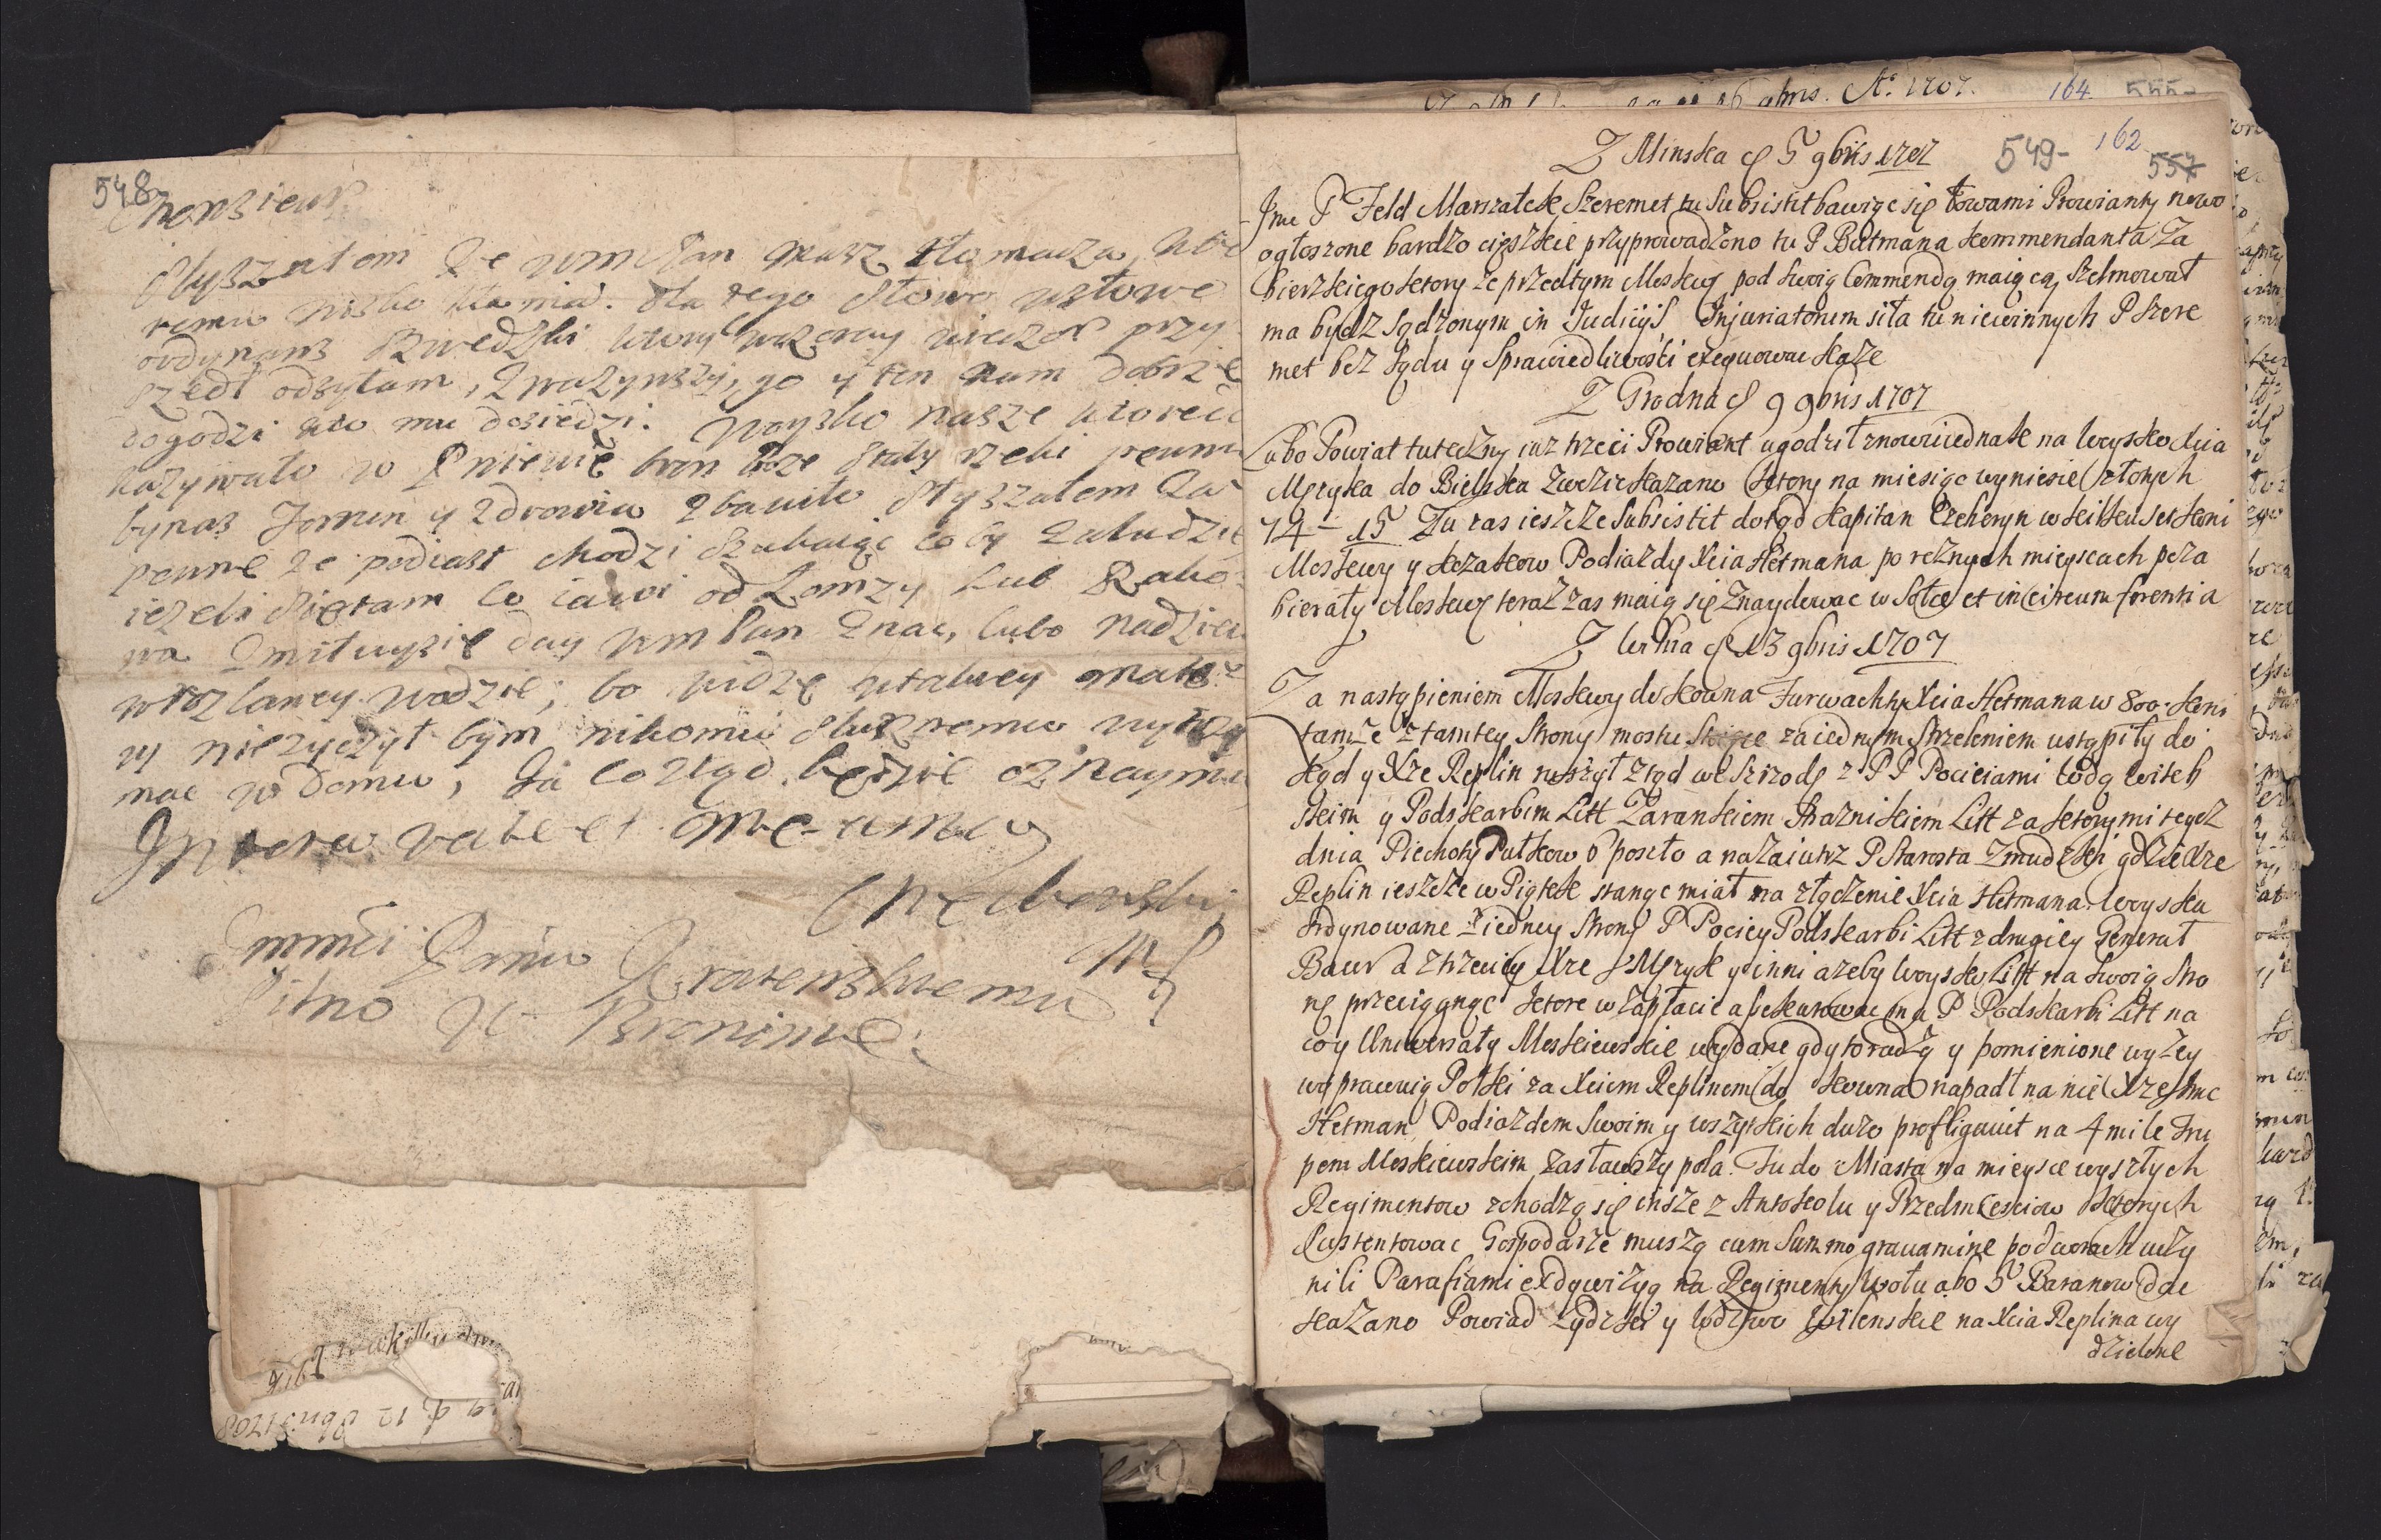 548
Monsieur
Słyszałem że wm Pan masz tłomacza, któ
remu nisko kłaniá. dla tego słowo w słowo
ordynans szwedzki ktory wczoray wieczor przy
szedł odsyłam, zważywszy, go y ten nam dobrze
dogodzi kto mu dosiedzi. Woysko nasze ktore
nazywało w Pniewie bron Boze
bynas y zdrowia zbawiło Słyszałem za
pewne ze podiazt chodzi szukaiąc coby załudzie
iezeli się tam co iawi od Lomzy lub Rako-
wa zmiłuysie day wm Pan znac, lubo nadzieia
w rozlaney wodzie; bo widzę w takiey
nieżyczył bym nikomu
mac w domu, Ja co ztąd będzie oznaymię
Interea vale et me ama
mp
Immci Panu
Pilno
a Bronimie.
A° 1707.
164 555
Z Minska d 5 9bris 1707
549- 162 557
Jmc P Feld Marszałek Szeremet tu Subsistit bawiąc się łowami Prowianty nowo
ogłoszone bardzo cięszkie przyprowadzono tu P Batmana kommendanta Za
bierskiego ktory ze przedtym Moskwę pod swoią Commendą maiącą, Szelmował
ma bydz Sądzonym in Judicijs Injuriatorum siła tu niewinnych P Szere
met bez Sądu y Sprawiedliwości exequowac każe
Z Grodna d 9 9bris 1707
Lubo Powiat tuteczny iuz trzeci Prowiant ugodził znowu iednak na Woysko Xcia
Męzyka do Bielska Zwozic kazano ktory na miesiąc wyniesie złotych
14 - 15 Tu zas ieszcze Subsistit dotąd Kapitan Czeheryn w kilkuset koni
Moskwy y kozakow Podiazdy Xcia Hetmana po roznych mieyscach poza
bierały Moskwę teraz zas maią się Znaydowac w Sołce et in circumforentia
Z Wilna d 13 9bris 1707
Za nastąpieniem Moskwy do Kowna Furwachty Xcia Hetmana w 800 koni
tamże z tamtey Strony mostu Stoiące za iednym Strzeleniem ustąpiły do
kąd y Xze Replin ruszył ztąd we Srzodę z PP Pocieiami Wdą Witeb
skim y Podskarbim Litt Zaranskiem Strażnikiem Litt za ktorymi tegoż
dnia Piechoty Pułkow 6 poszło a nazaiutrz P Starosta Zmudzki gdzie Xze
Replin ieszcze w Piątek stanąc miał na złączenie Xcia Hetmana Woyska
Ordynowane z iedney Strony P Pociey Podskarbi Litt z drugiey Generał
Baur a z trzeciey Xze Męzyk y inni azeby Woysko Litt na Swoią Stro
nę przeciągnąc ktore w zapłacie asekurowac ma P Podskarbi Litt na
co y Uniwersały Moskiewskie wydane gdy to radzą y pomienione wyżey
wyprawuią Połki za Xciem Replinem do Kowna napadł na nie Xze Jmc
Hetman Podiazdem Swoim y wszytkich duzo profligavit na 4 mile tru
pem Moskiewskim zasławszy pola. Tu do Miasta na mieysce wyszłych
Regimentow schodzą się insze z Antokolu y Przedmiesciow ktorych
Sustentowac Gospodarze muszą cum Summo gravamine po dworach uczy
nili Parafiami exdywizyą na Regimenty Wołu abo 5 Baranow dac
kazano Powiad Lydzki y Wdztwo Wilenskie na Xcia Replina wy
dzielone
12 8br: 1708